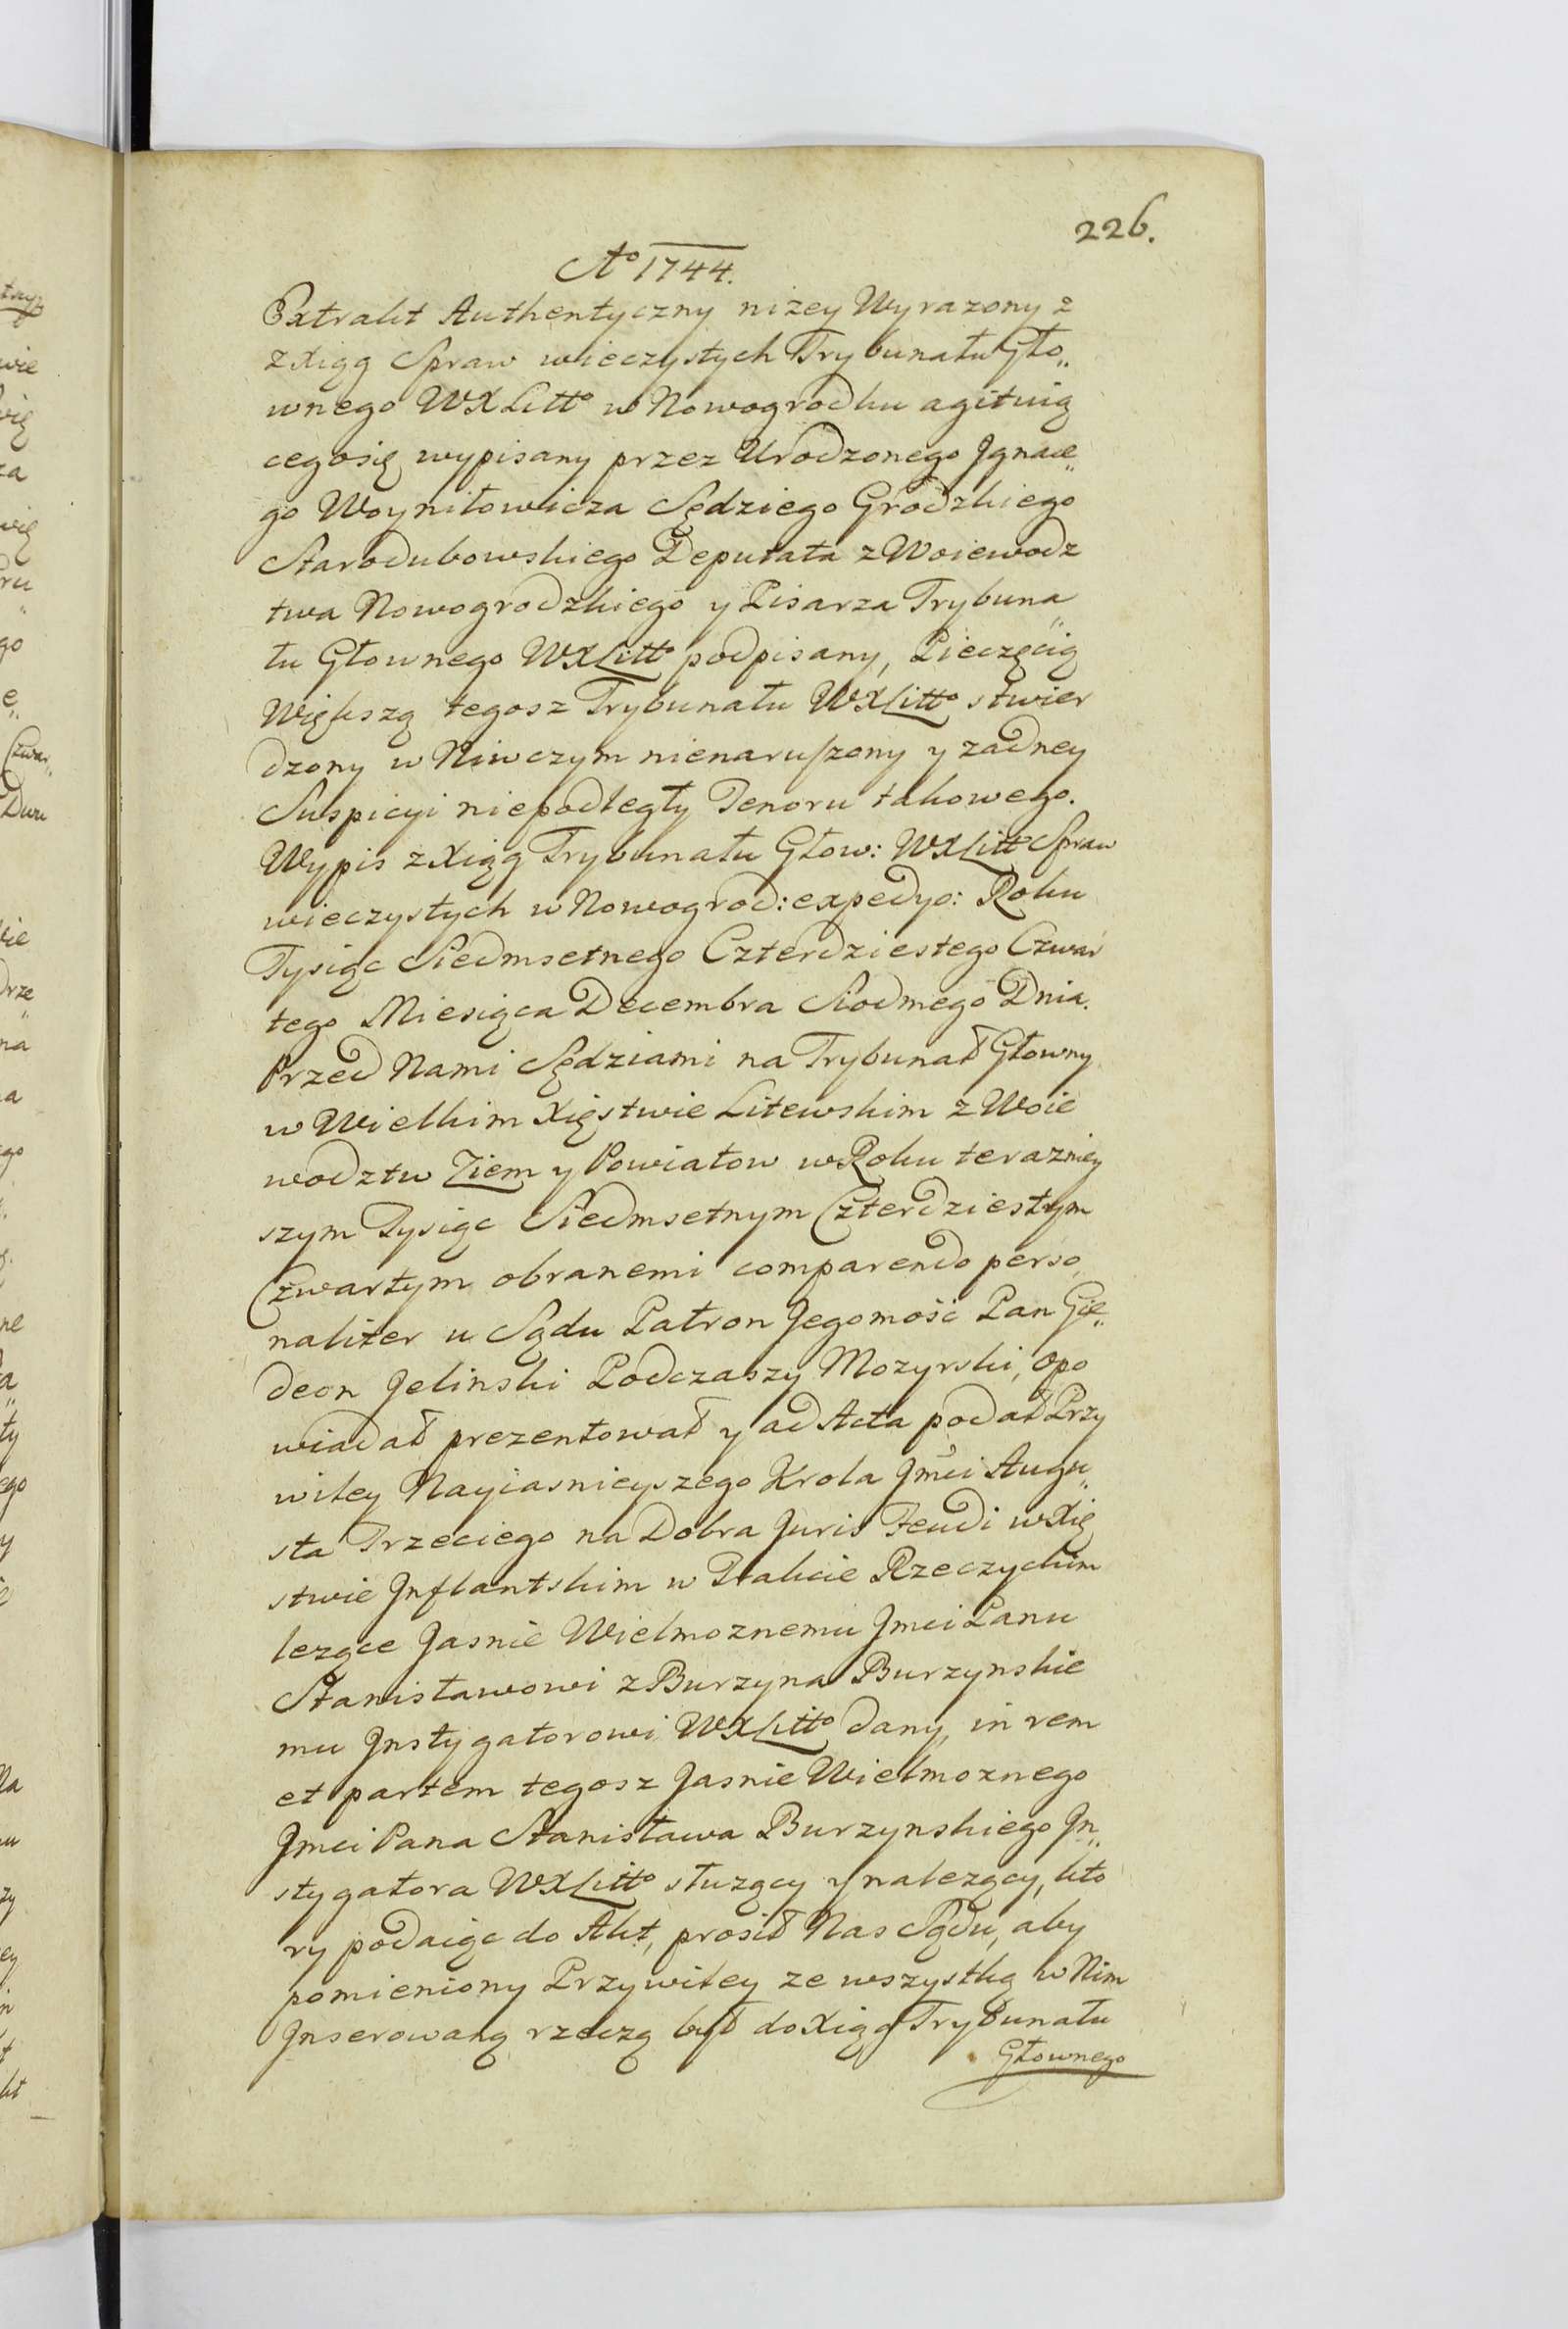 226.
Aº 1744.
Extrakt Authentyczny niżey Wyrazony z
z Xiąg Spraw wieczystych Trybunału Gło„
wnego WXLittº w Nowogrodku agituią
cegosię wypisany przez Urodzonego Jgnace„
go Woyniłowicza Sędziego Grodzkiego
Starodubowskiego Deputata z Woiewodz
twa Nowogrodzkiego y Pisarza Trybuna„
łu Głownego WXLittº podpisany, Pieczęcią
Większą tegosz Trybunału WXLittº stwier
dzony w Niwczym nienaruszony y zadney
Suspicyi niepodległy Tenoru takowego.
Wypis z Xiąg Trybunału Głow: WXLittº Spraw
wieczystych w Nowogrod: expedyo: Roku
Tysiąc Siedmsetnego Czterdziestego Czwar
tego Miesiąca Decembra Siodmego Dnia.
Przed Nami Sędziami na Trybunał Głowny
w Wielkim Xięstwie Litewskim z Woie
wodztw Ziem y Powiatow w Roku terazniey
szym Tysiąc Siedmsetnym Czterdziestym
Czwartym obranemi comparendo perso„
naliter u Sądu Patron Jegomość Pan Gie„
deon Jelinski Podczaszy Mozyrski, opo
wiadał prezentował y ad Acta podał Przy
wiley Nayiasnieyszego Krola Jmci Augu„
sta Trzeciego na Dobra Juris Feudi w Xię
stwie Jnflantskim w Trakcie Rzeczyckim
lezące Jasnie Wielmoznemu Jmci Panu
Stanisławowi z Burzyna Burzynskie
mu Jnstygatorowi WXLittº dany, in rem
et partem tegosz Jasnie Wielmoznego
Jmci Pana Stanisława Burzynskiego Jn„
stygatora WXLittº słuzący y nalezący, kto
ry podaiąc do Akt, prosił Nas Sądu, aby
pomieniony Przywiley ze wszystką w Nim
Jnserowaną rzeczą był do Xiąg Trybunału
Głownego